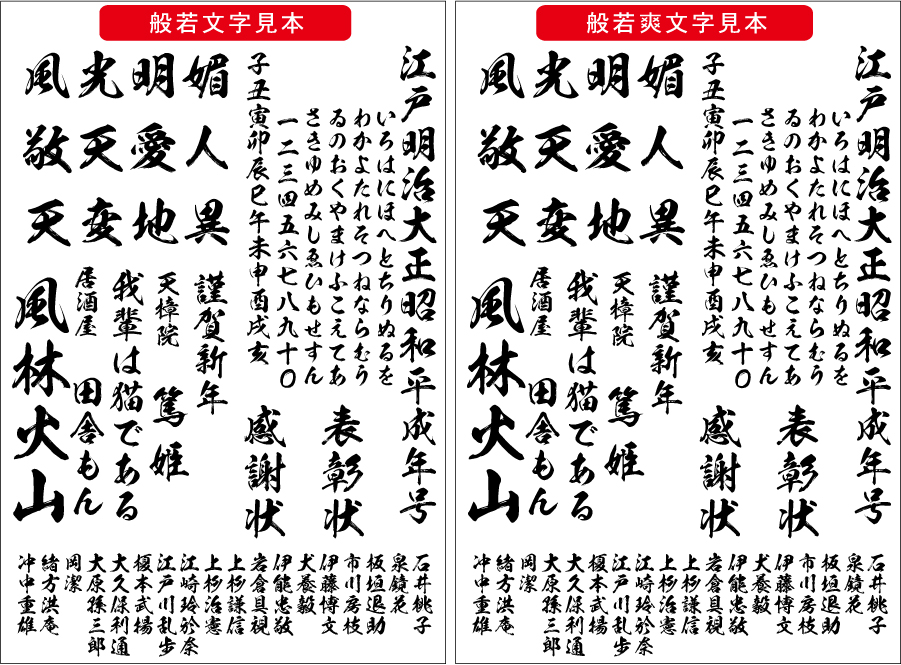 般若文字見本
江戸明治大正昭和平成年号
いろはにほへとちりぬるを
わかよたれそつねならむう
ゐのおくやまけふこえてあ
さきゆめみしゑひもせすん
一二三四五六七八九十〇
子丑寅卯辰巳午未申酉戌亥
表彰状
感謝状
媚人異
明愛地
光天変
風敬天
謹賀新年
天樟院 篤姫
我輩は猫である
居酒屋 田舎もん
風林火山
石井桃子
泉鏡花
板垣退助
市川房枝
伊藤博文
犬養毅
伊能忠敬
岩倉具視
上杉謙信
上杉治憲
江崎玲於奈
江戸川乱歩
榎本武揚
大久保利通
大原孫三郎
岡潔
緒方洪庵
冲中重雄
般若爽文字見本
江戸明治大正昭和平成年号
いろはにほへとちりぬるを
わかよたれそつねならむう
ゐのおくやまけふこえてあ
さきゆめみしゑひもせすん
一二三四五六七八九十〇
子丑寅卯辰巳午未申酉戌亥
表彰状
感謝状
媚人異
明愛地
光天変
風敬天
謹賀新年
天樟院 篤姫
我輩は猫である
居酒屋 田舎もん
風林火山
石井桃子
泉鏡花
板垣退助
市川房枝
伊藤博文
犬養毅
伊能忠敬
岩倉具視
上杉謙信
上杉治憲
江崎玲於奈
江戸川乱歩
榎本武揚
大久保利通
大原孫三郎
岡潔
緒方洪庵
冲中重雄